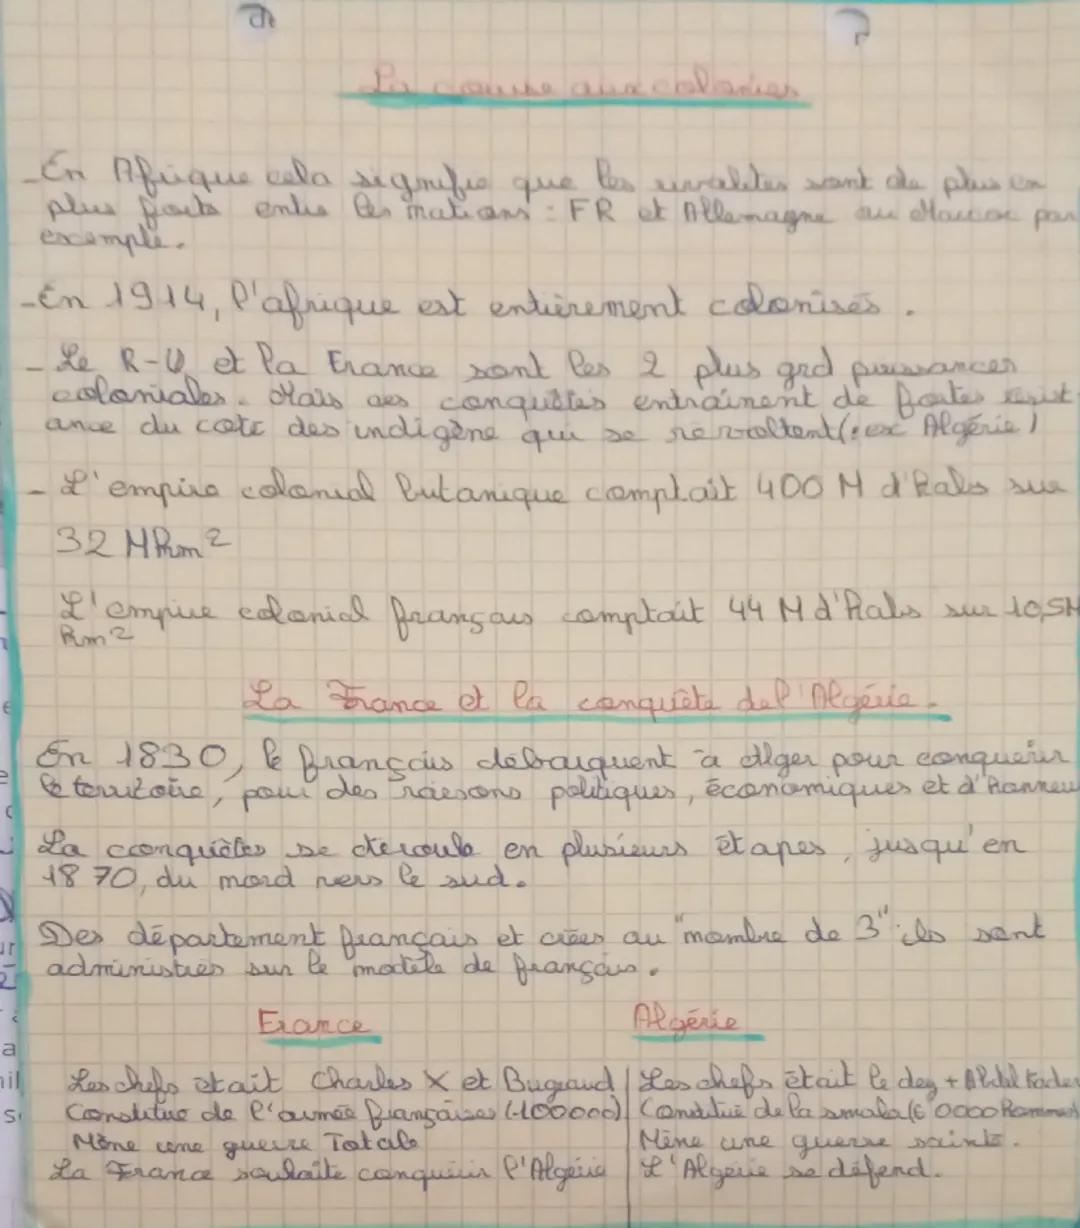 La course aux colonies
- En Afrique cela signifie que les rivalités sont de plus en
plus forts entre les nations : FR et Allemagne au Maroc par
exemple.
- En 1914, l'afrique est entièrement colonisés.
- Le R-U et la France sont les 2 plus grd puissances
coloniales. Mais ces conquêtes entraînent de fortes résist-
ance du coté des indigène qui se revoltent (: ex Algérie)
- L'empire colonial britanique comptait 400 M d'habs sur
32 Mkm²
L'empire colonial français comptait 44 M d'habs sur 10,5M
km²
La France et la conquête de l'Algérie.
En 1830, le français débarquent à Alger pour conquérir
le territoire, pour des raisons politiques, économiques et d'honneur
La conquêtes se déroule en plusieurs étapes, jusqu'en
1870, du nord vers le sud.
Des département français et crées au "nombre de 3" ils sont
administrés sur le modèle de français.
France
Algérie
Les chefs était Charles X et Bugeaud
Les chefs était le dey + Abdel Kader
Constitué de l'armée françaises (100000)
Constitué de la smala (60000 hommes)
Mène une guerre Totale
Mène une guerre sainte.
La France souhaite conquérir l'Algérie
L'Algérie se défend.